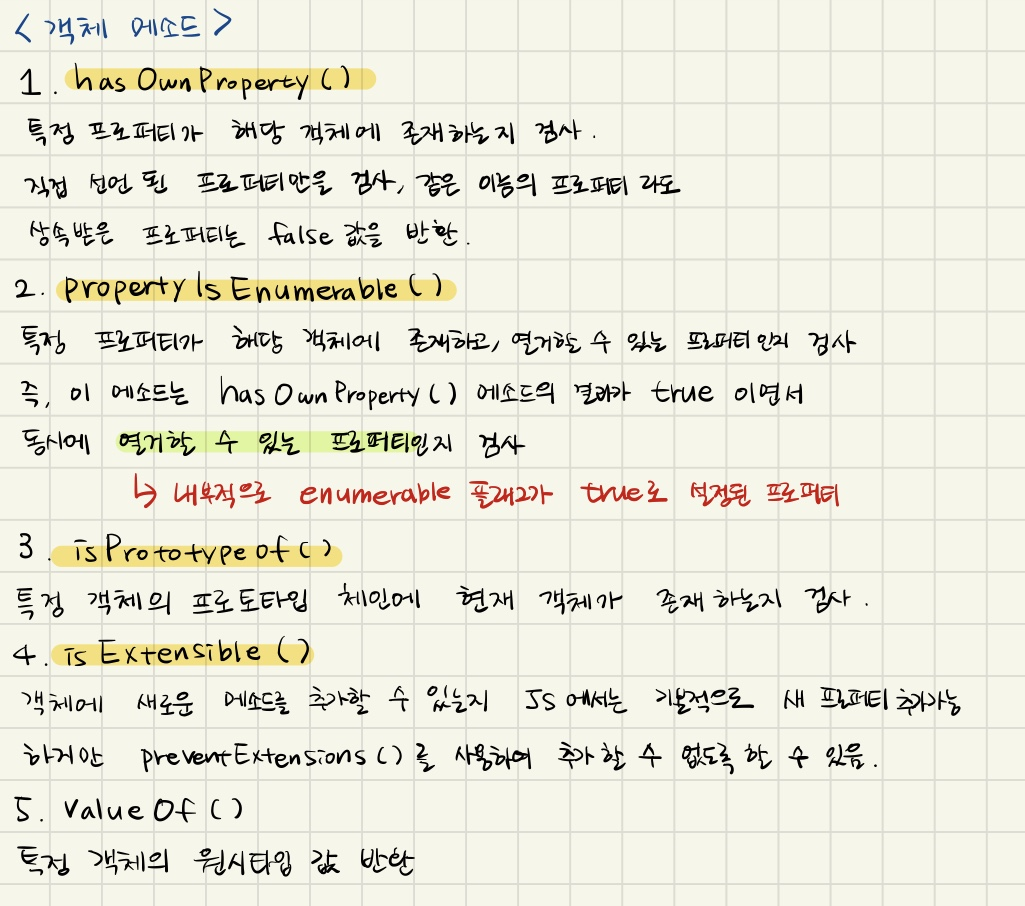 < 객체 메소드 >
1. hasOwnProperty()
특정 프로퍼티가 해당 객체에 존재하는지 검사.
직접 선언 된 프로퍼티만을 검사, 같은 이름의 프로퍼티 라도
상속받은 프로퍼티는 false 값을 반환.
2. propertyIsEnumerable()
특정 프로퍼티가 해당 객체에 존재하고, 열거할 수 있는 프로퍼티인지 검사
즉, 이 메소드는 hasOwnProperty() 메소드의 결과가 true 이면서
동시에 열거할 수 있는 프로퍼티인지 검사
↳ 내부적으로 enumerable 플래그가 true로 설정된 프로퍼티
3. isPrototypeof()
특정 객체의 프로토타입 체인에 현재 객체가 존재 하는지 검사.
4. isExtensible()
객체에 새로운 메소드를 추가할 수 있는지 JS에서는 기본적으로 새 프로퍼티 추가가능
하지만 preventExtensions()를 사용하여 추가 할 수 없도록 할 수 있음.
5. valueOf()
특정 객체의 원시타입 값 반환